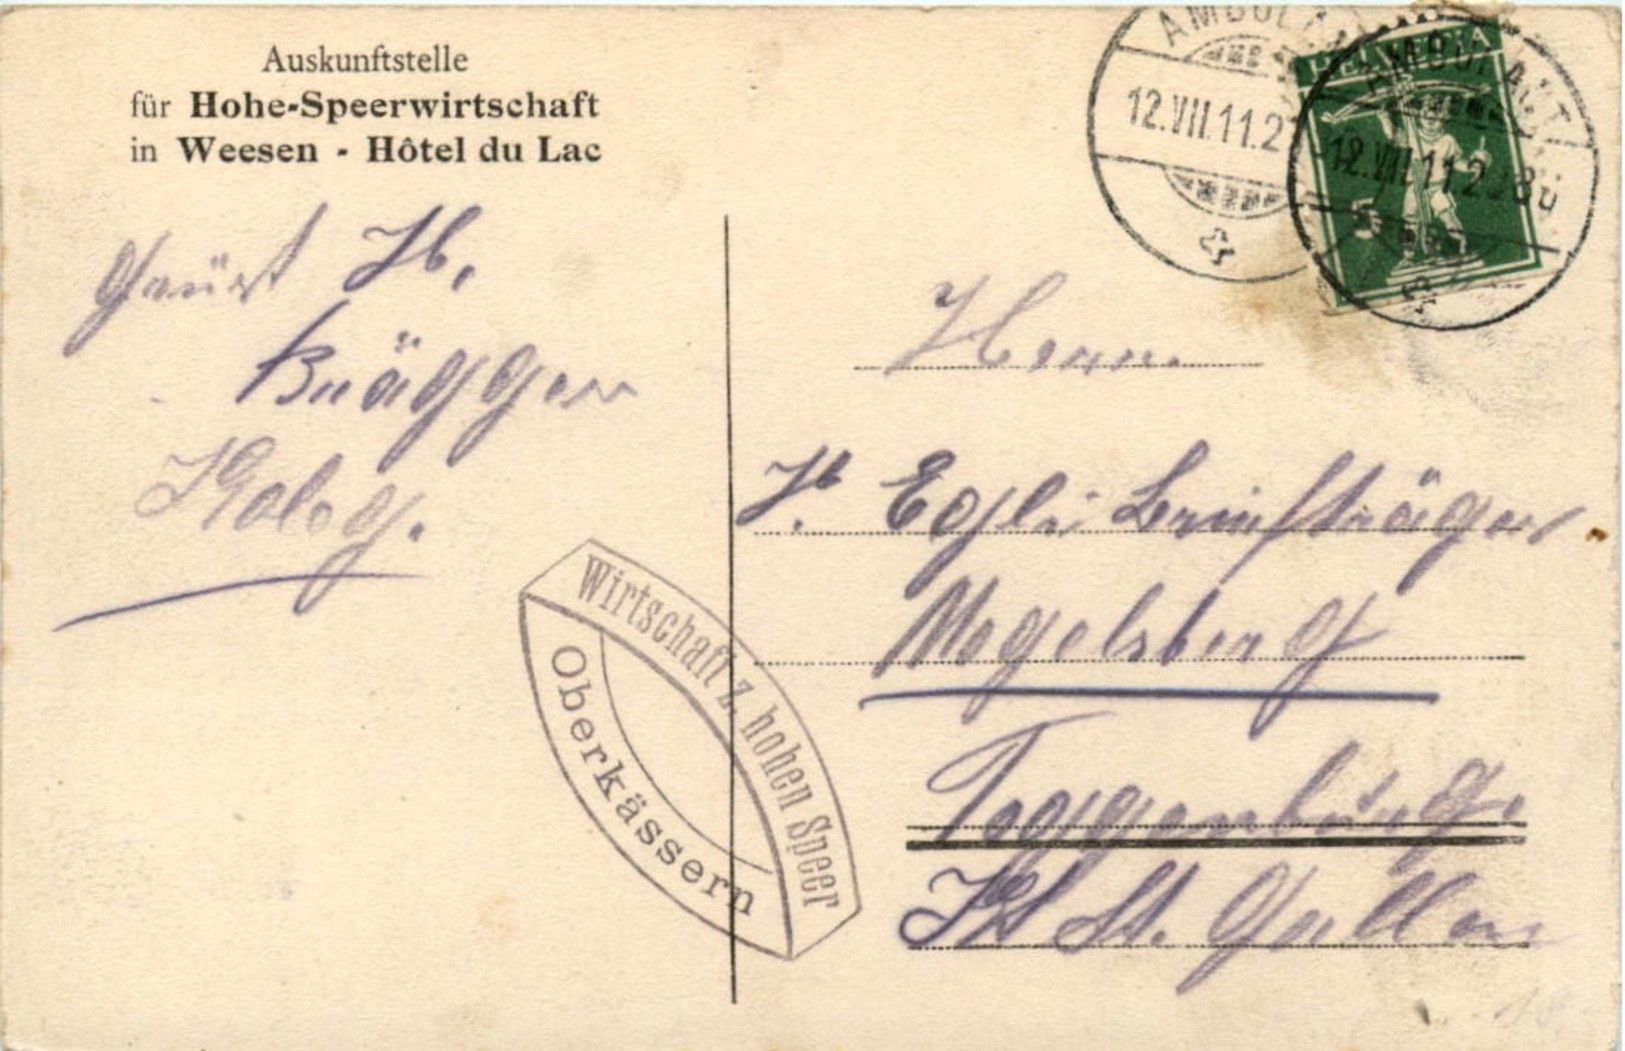 Auskunftstelle
für Hohe-Speerwirtschaft
in Weesen - Hôtel du Lac
AMBULANT
12.VII.11.2
HELVETIA
5
AMBULANT
12.VII.11.2
Gruss
Brägger
Herrn.
Egli Briefträger
Mogelsberg
Toggenburg.
Kt St. Gallen
Wirtschaft z. hohen Speer
Oberkässern